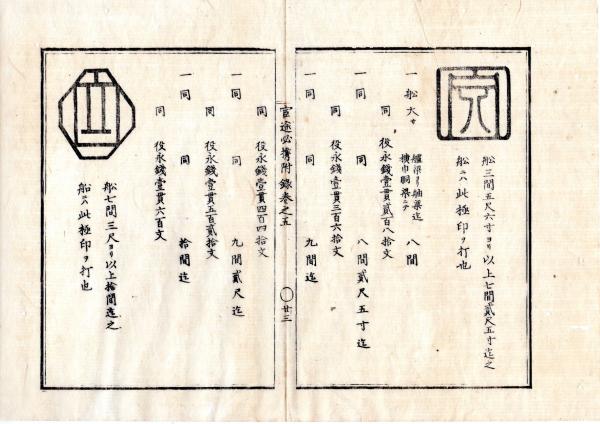 船三間五尺六寸ヨリ以上七間貳尺五寸迄之
船ハ此極印ヲ打也
一船大サ 艫梁ヨリ舳梁迄 横巾胴梁ニテ 八間
同 役永錢壹貫貳百八拾文
一同 同 八間貳尺五寸迄
同 役永錢壹貫三百六拾文
一同 同 九間迄
官途必携附錄卷之五 廿三
同 役永錢壹貫四百四拾文
一同 同 九間貳尺迄
同 役永錢壹貫五百貳拾文
一同 同 拾間迄
同 役永錢壹貫六百文
船七間三尺ヨリ以上拾間迄之
船ハ此極印ヲ打也